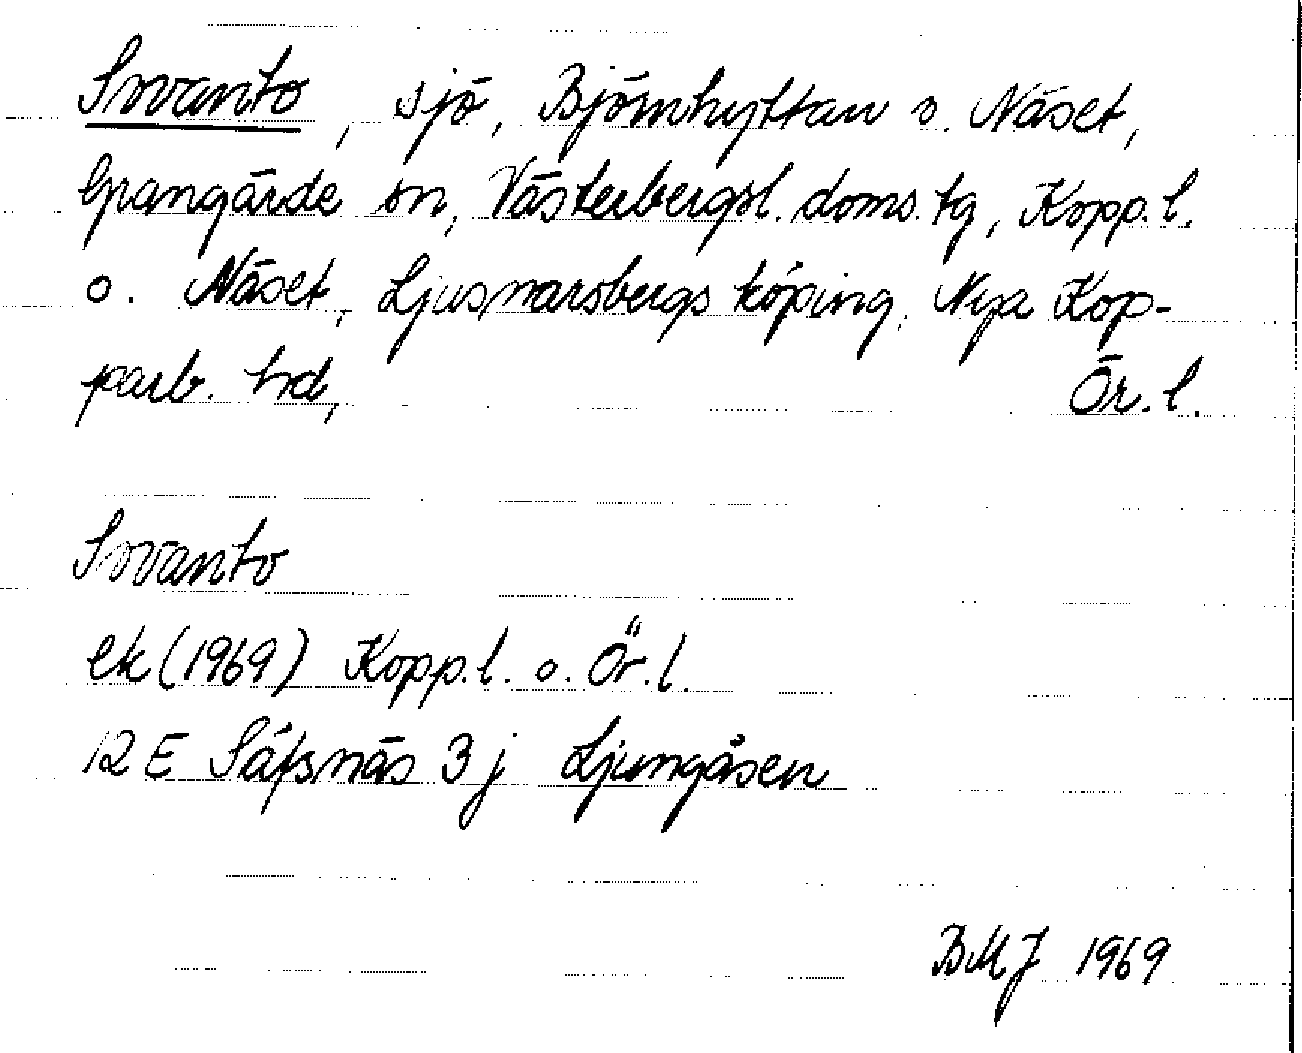 Sovanto, sjö, Björnhyttan o. Näset,
Grangärde sn, Västerbergsl. doms. tg, Kopp. l.
o. Näset, Ljusnarsbergs köping, Nya Kop-
parb. hd, Ör. l.
Sovanto
ek (1969) Kopp. l. o. Ör. l.
12 E Säfsnäs 3 j Ljungåsen
BMJ 1969